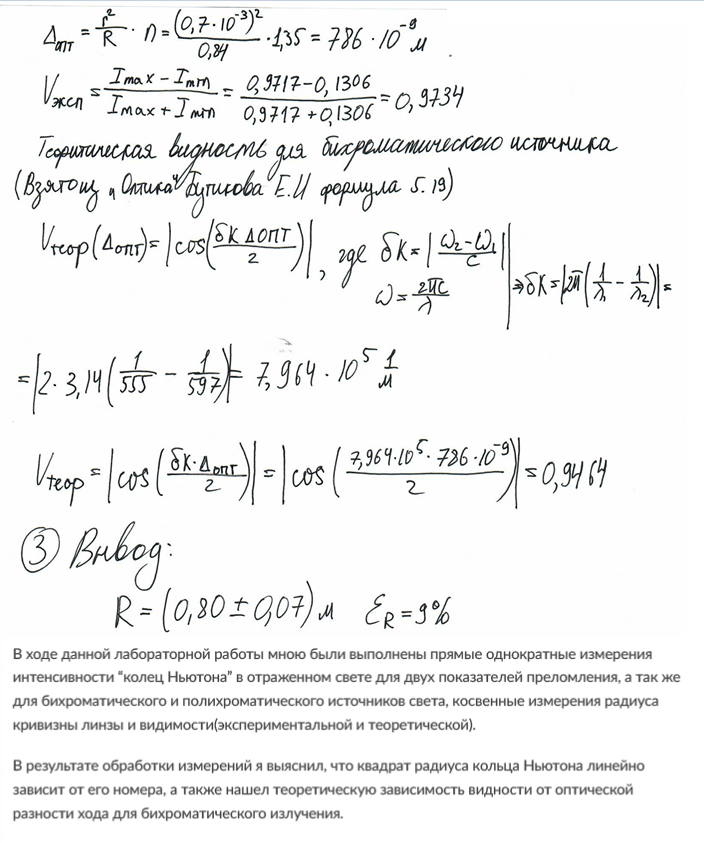 Δопт = r²/R · n = (0,7·10⁻³)²/0,84 · 1,35 = 786·10⁻⁹ м
Vэксп = (Imax − Imin)/(Imax + Imin) = (0,9717−0,1306)/(0,9717+0,1306) = 0,9734
Теоритическая видность для бихроматического источника
(Взято из „Оптика" Бутикова Е.И формула 5.19)
Vтеор(Δопт) = |cos(δK ΔОПТ/2)|, где δK = |(ω₂−ω₁)/c| ω = 2πc/λ ⇒ δK = |2π(1/λ₁ − 1/λ₂)| =
= |2·3,14(1/555 − 1/597)| = 7,964·10⁵ 1/м
Vтеор = |cos(δK·Δопт/2)| = |cos(7,964·10⁵·786·10⁻⁹/2)| = 0,9464
③ Вывод:
R = (0,80 ± 0,07) м ℰR = 9%
В ходе данной лабораторной работы мною были выполнены прямые однократные измерения
интенсивности “колец Ньютона” в отраженном свете для двух показателей преломления, а так же
для бихроматического и полихроматического источников света, косвенные измерения радиуса
кривизны линзы и видимости(экспериментальной и теоретической).
В результате обработки измерений я выяснил, что квадрат радиуса кольца Ньютона линейно
зависит от его номера, а также нашел теоретическую зависимость видности от оптической
разности хода для бихроматического излучения.